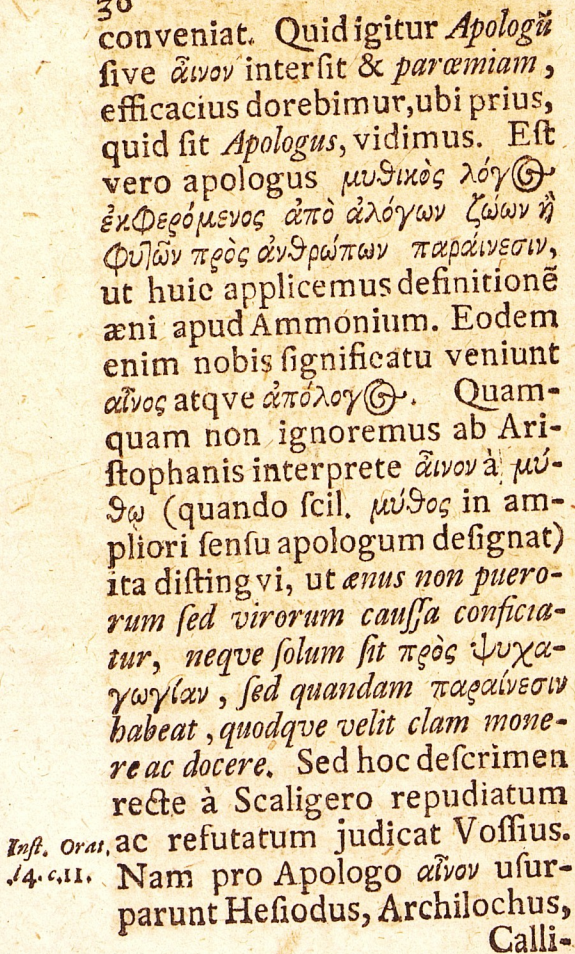 30
conveniat. Quid igitur Apologū
ſive ἄινον interſit & parœmiam,
efficacius dorebimur, ubi prius,
quid ſit Apologus, vidimus. Eſt
vero apologus μυθικὸς λόγ⊙
ἐκφερόμενος ἀπὸ ἀλόγων ζώων ἢ
φυτῶν πρὸς ἀνθρώπων παράινεσιν,
ut huic applicemus definitionē
æni apud Ammonium. Eodem
enim nobis ſignificatu veniunt
αἶνος atqve ἀπόλογ⊙. Quam-
quam non ignoremus ab Ari-
ſtophanis interprete ἄινον à μύ-
θῳ (quando ſcil. μύθος in am-
pliori ſenſu apologum deſignat)
ita diſtingvi, ut ænus non puero-
rum ſed virorum cauſſa conficia-
tur, neqve ſolum ſit πρὸς ψυχα-
γωγίαν, ſed quandam παραίνεσιν
habeat, quodqve velit clam mone-
re ac docere. Sed hoc deſcrimen
recte à Scaligero repudiatum
Inſt. Orat. ac refutatum judicat Voſſius.
l4. c.11. Nam pro Apologo αἶνον uſur-
parunt Heſiodus, Archilochus,
Calli-